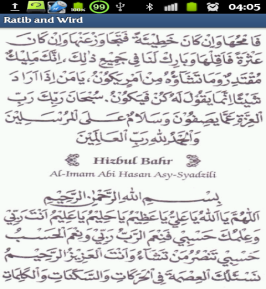 99 04:05
Ratib and Wird
فَامْحُهَا وَإِنْ كَانَ خَطِيْئَةً فَتَجَاوَزْ عَنْهَا وَإِنْ كَانَ
عَثْرَةً فَأَقِلْهَا وَبَارِكْ لَنَا فِي جَمِيْعِ ذٰلِكَ، إِنَّكَ مَلِيْكٌ
مُقْتَدِرٌ وَمَا تَشَاؤُهُ مِنْ أَمْرٍ يَكُوْنُ، يَا مَنْ إِذَا أَرَادَ
شَيْئًا إِنَّمَا يَقُوْلُ لَهُ كُنْ فَيَكُوْنُ. سُبْحَانَ رَبِّكَ رَبِّ
الْعِزَّةِ عَمَّا يَصِفُوْنَ وَسَلَامٌ عَلَى الْمُرْسَلِيْنَ
وَالْحَمْدُ لِلّٰهِ رَبِّ الْعَالَمِيْنَ
Hizbul Bahr
Al-Imam Abi Hasan Asy-Syadzili
بِسْمِ اللهِ الرَّحْمٰنِ الرَّحِيْمِ
اَللّٰهُمَّ يَا اَللهُ يَا عَلِيُّ يَا عَظِيْمُ يَا حَلِيْمُ يَا عَلِيْمُ أَنْتَ رَبِّيْ
وَعِلْمُكَ حَسْبِيْ فَنِعْمَ الرَّبُّ رَبِّيْ وَنِعْمَ الْحَسْبُ
حَسْبِيْ تَنْصُرُ مَنْ تَشَاءُ وَأَنْتَ الْعَزِيْزُ الرَّحِيْمُ
نَسْئَلُكَ الْعِصْمَةَ فِي الْحَرَكَاتِ وَالسَّكَنَاتِ وَالْكَلِمَاتِ